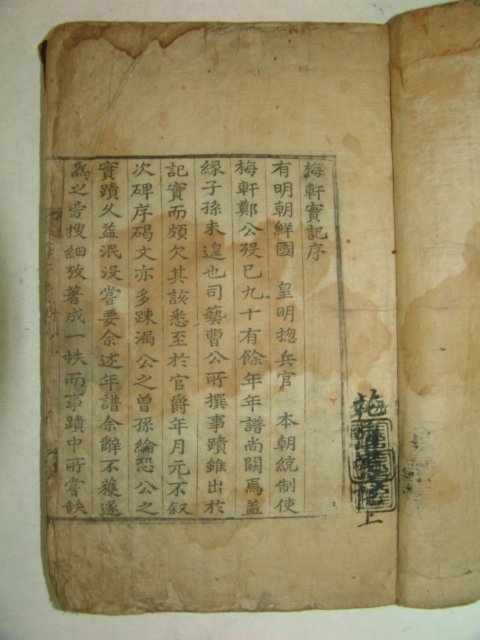 梅軒實記序
有明朝鮮國 皇明摠兵官 本朝統制使
梅軒鄭公歿已九十有餘年年譜尚闕焉蓋
緣子孫未遑也司藝曹公所撰事蹟雖出於
記實而頗欠其該悉至於官爵年月元不叙
次碑序碣文亦多踈漏公之曾孫綸恐公之
實蹟久益泯没嘗要余述年譜余辭不獲遂
爲之旁搜細攷著成一帙而事蹟中所嘗缺
上